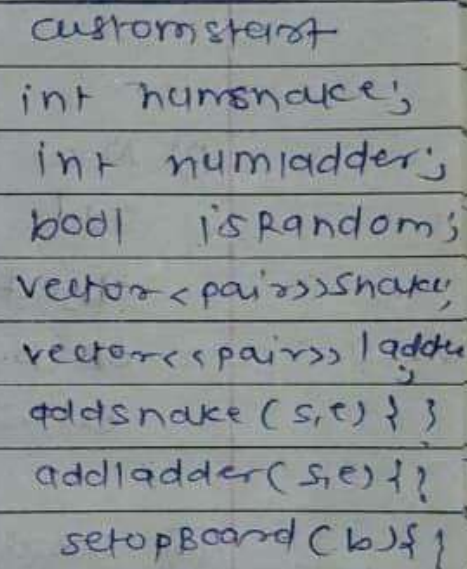 customstart
int numsnake;
int numladder;
bool isRandom;
vector<pair>>snake;
vector<<pair>> ladder;
addsnake (s,e) { }
addladder(s,e) { }
setupBoard (b){ }